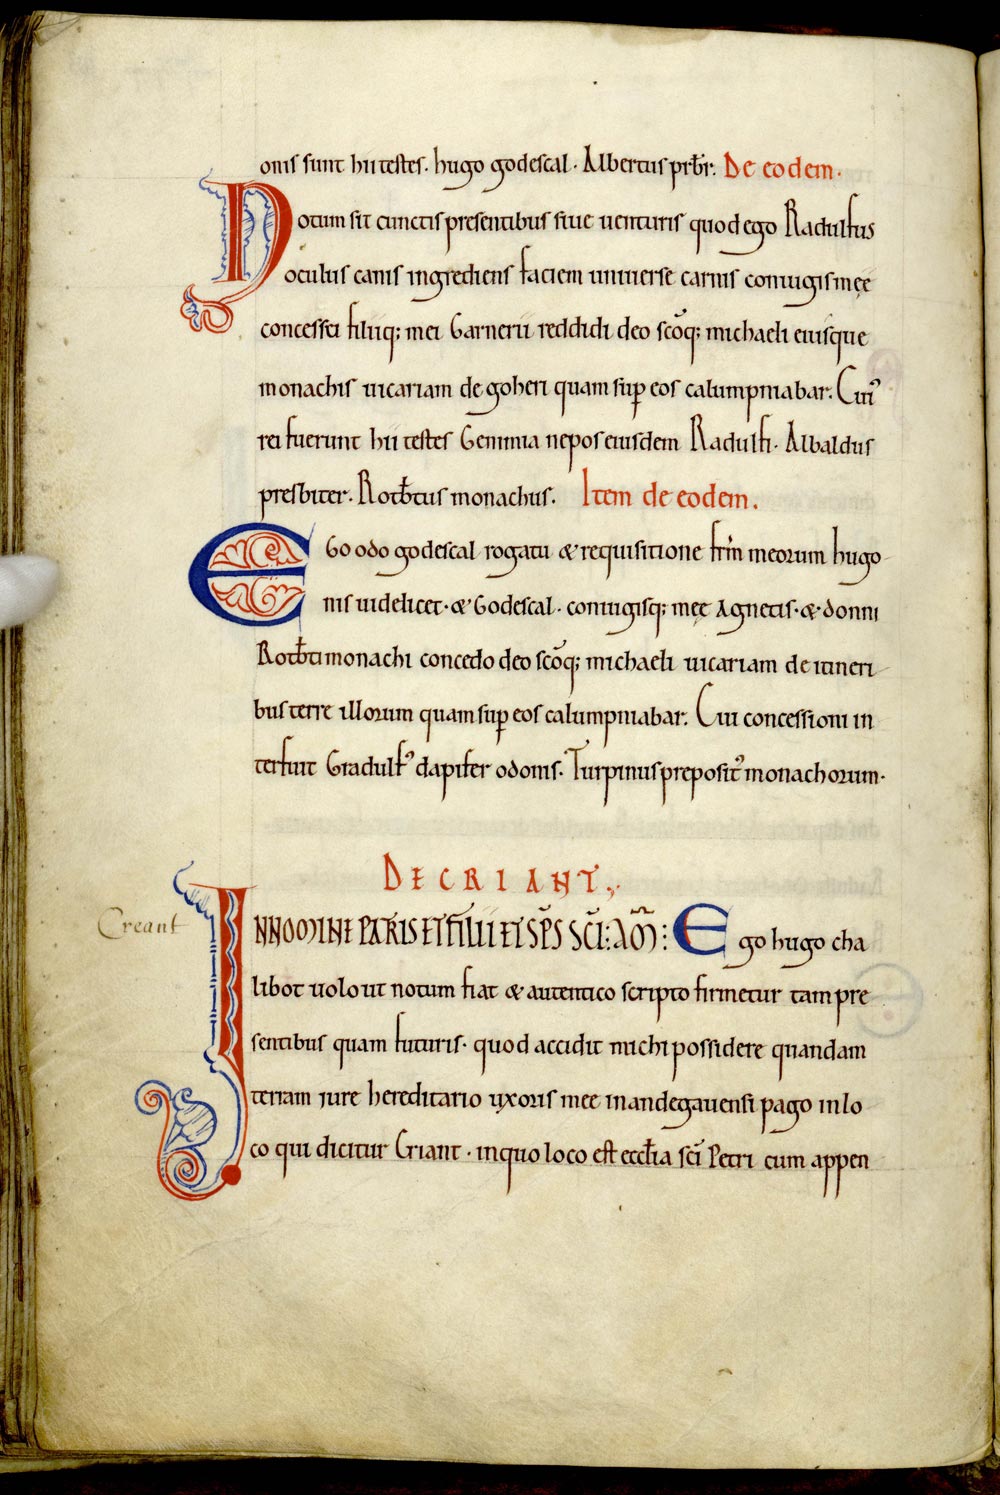 onis sunt hii testes. hugo godescal. Albertus prb̅r. De eodem.
Notum sit cunctis presentibus siue uenturis quod ego Radulfus
oculus canis ingrediens faciem uniuerse carnis coniugis meę
concessu filiiq; mei Garnerii reddidi deo sc̅oq; michaeli eiusque
monachis uicariam de goheri quam sup̱ eos calumpniabar. Cui᾿
rei fuerunt hii testes Gemmia nepos eiusdem Radulfi. Albaldus
presbiter. Rotb̅tus monachus. Item de eodem.
EGo odo godescal rogatu & requisitione fr̅m meorum hugo
nis uidelicet. & Godescal. coniugisq; meę Agnetis. & donni
Rotb̅ti monachi concedo deo sc̅oq; michaeli uicariam de itineri
bus terre illorum quam sup̱ eos calumpniabar. Cui concessioni in
terfuit Gradulf᾿ dapifer odonis. Turpinus preposit᾿ monachorum.
DE CRIANT.
Creant
IN NOMINE PATRIS ET FILII ET SP̅S SC̅I: AM̅: Ego hugo cha
libot uolo ut notum fiat & autentico scripto firmetur tam pre
sentibus quam futuris. quod accidit michi possidere quandam
terram iure hereditario uxoris mee in andegauensi pago in lo
co qui dicitur Criant. in quo loco est eccl̅ia sc̅i Petri cum appen